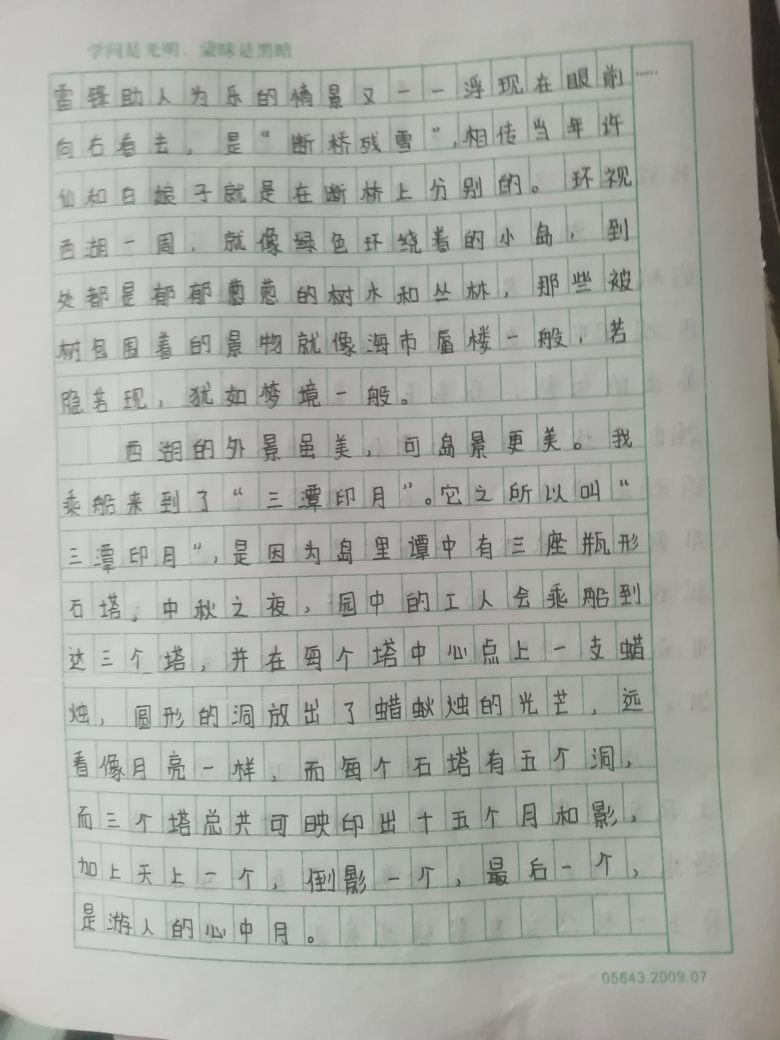 学问是光明，蒙昧是黑暗
雷锋助人为乐的情景又一一浮现在眼前……
向右看去，是“断桥残雪”，相传当年许
仙和白娘子就是在断桥上分别的。环视
西湖一周，就像绿色环绕着的小岛，到
处都是郁郁葱葱的树木和丛林，那些被
树包围着的景物就像海市蜃楼一般，若
隐若现，犹如梦境一般。
西湖的外景虽美，可岛景更美。我
乘船来到了“三潭印月”。它之所以叫“
三潭印月”，是因为岛里谭中有三座瓶形
石塔。中秋之夜，园中的工人会乘船到
达三个塔，并在每个塔中心点上一支蜡
烛，圆形的洞放出了蜡烛的光芒，远
看像月亮一样，而每个石塔有五个洞，
而三个塔总共可映印出十五个月和影，
加上天上一个，倒影一个，最后一个，
是游人的心中月。
05643.2009.07